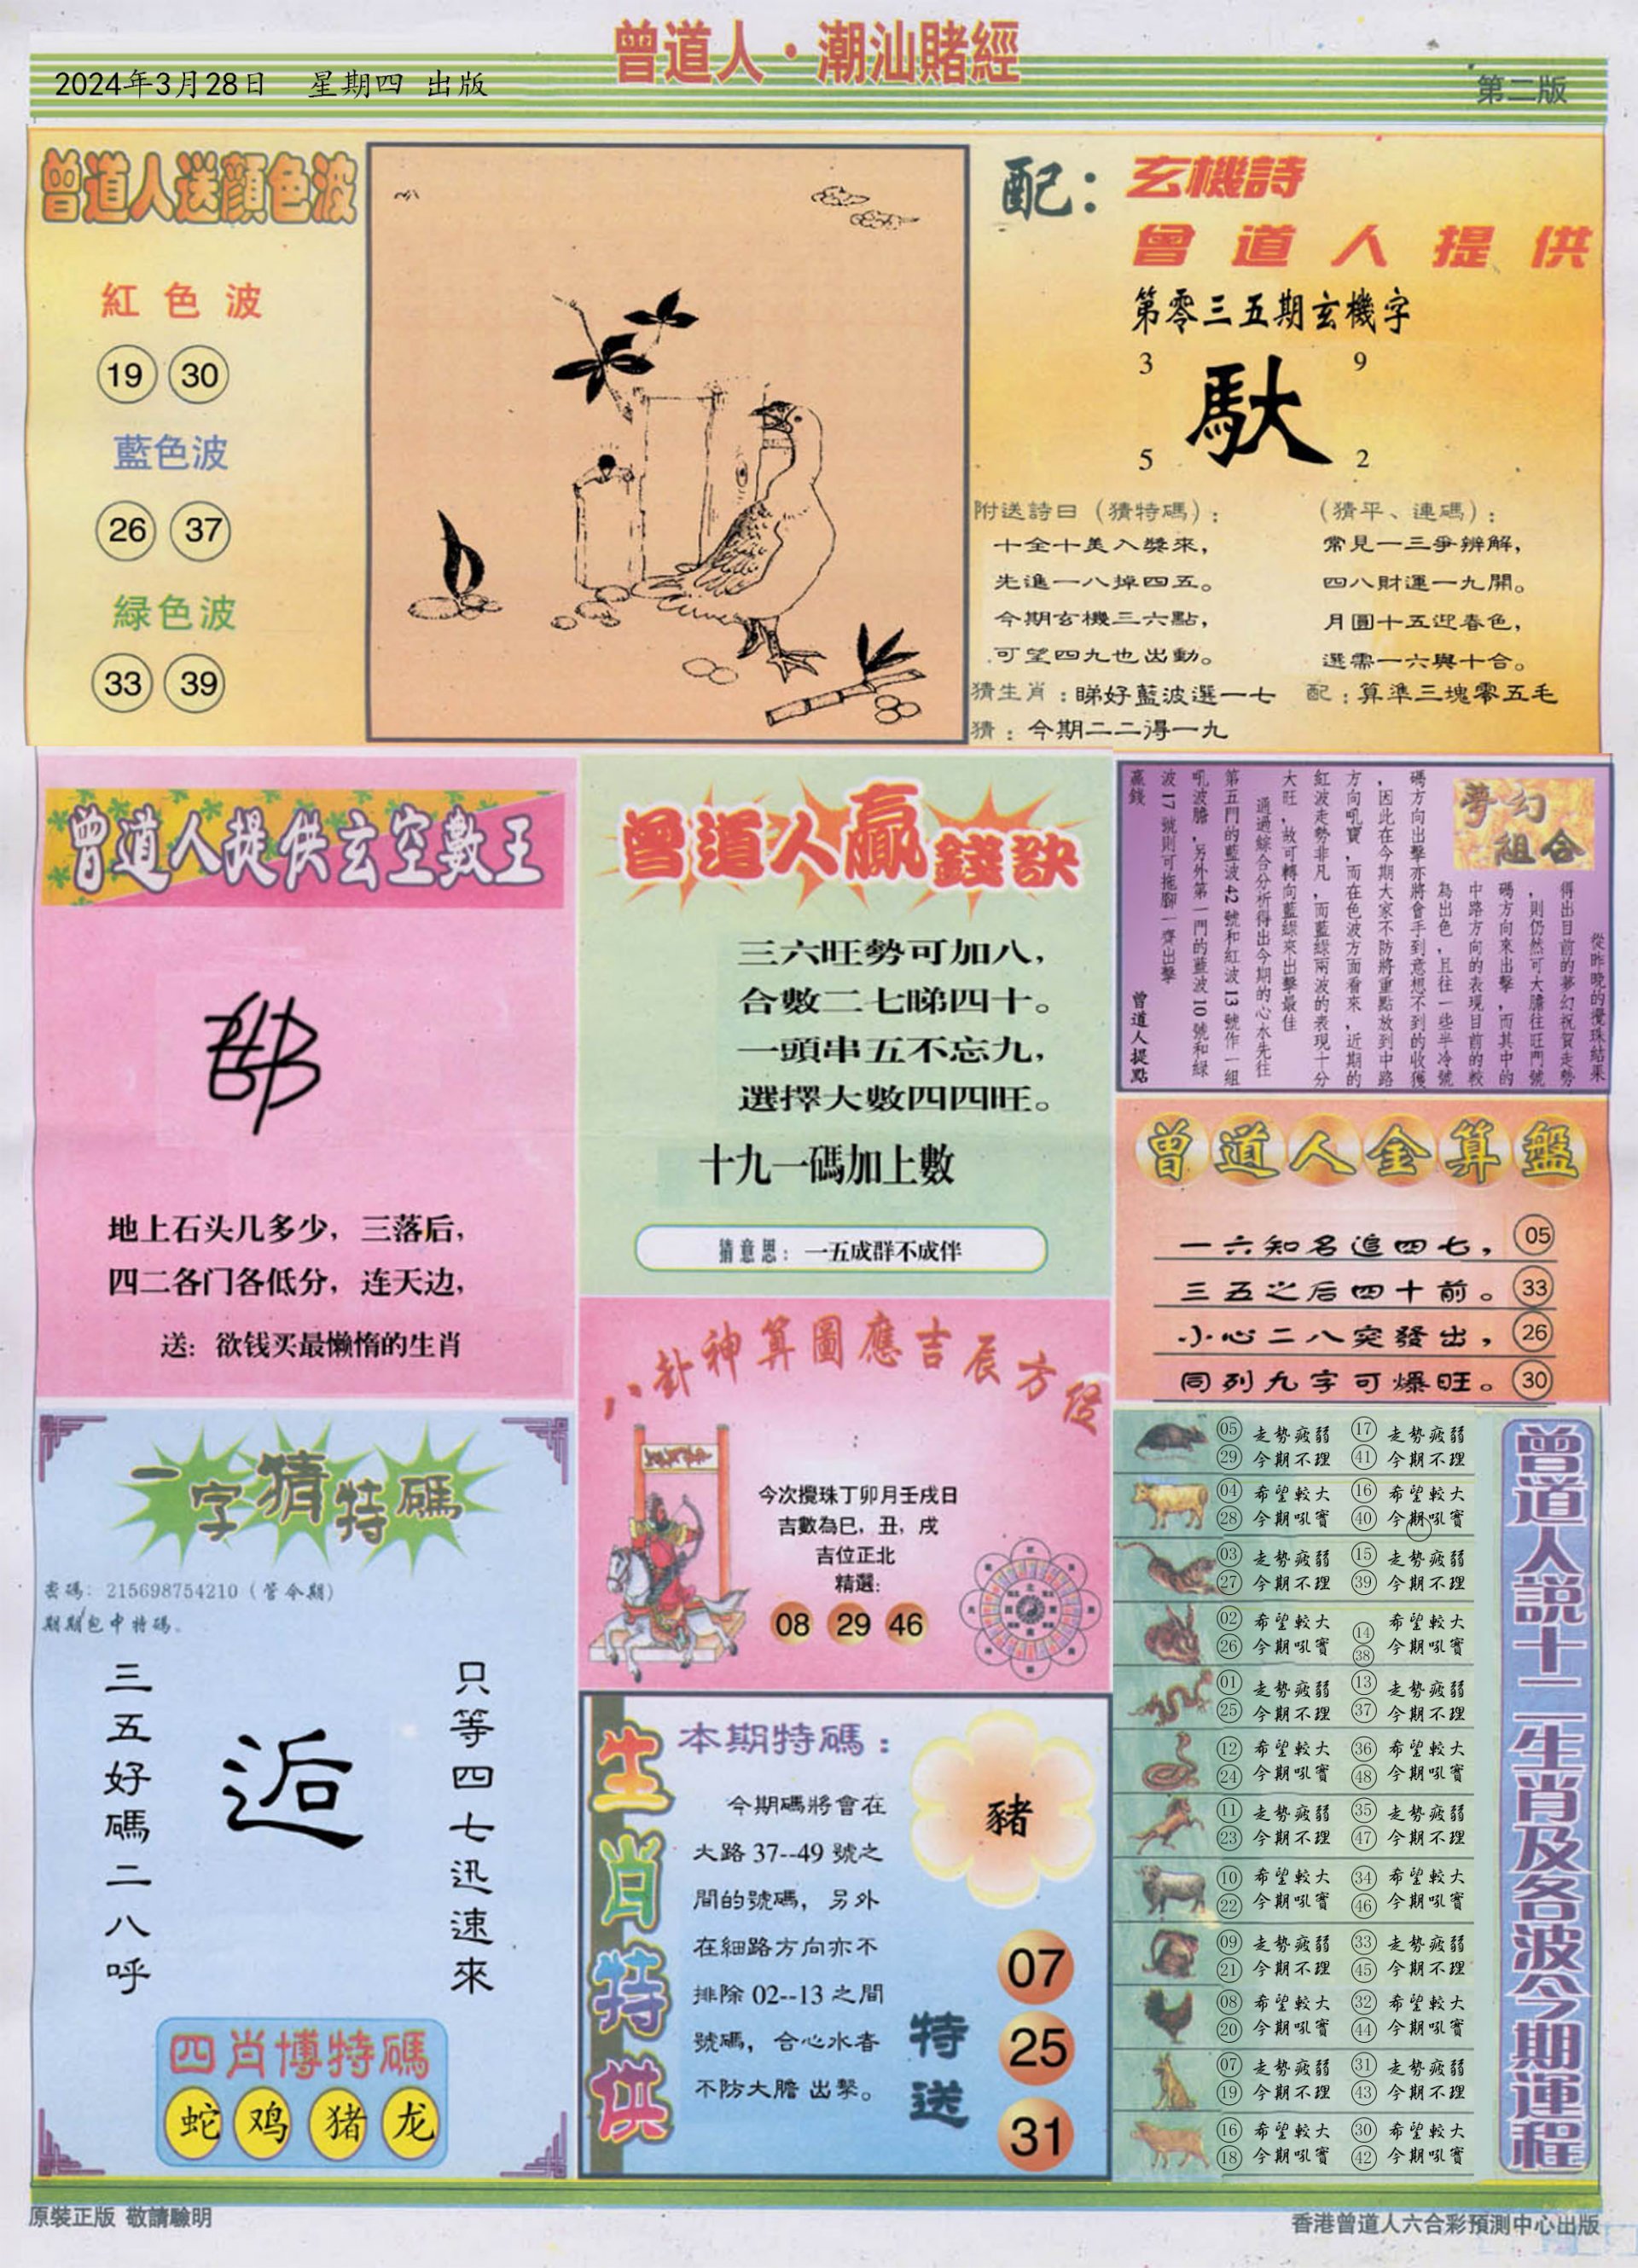 曾道人·潮汕賭經
2024年3月28日 星期四 出版
第二版
曾道人送顔色波
紅色波
19 30
藍色波
26 37
緑色波
33 39
配：玄機詩
曾道人提供
第零三五期玄機字
3 9
馱
5 2
附送詩曰（猜特碼）：
十全十美入獎來，
先進一八掉四五。
今期玄機三六點，
可望四九也出動。
（猜平、連碼）：
常見一三爭辨解，
四八財運一九開。
月圓十五迎春色，
選需一六與十合。
猜生肖：睇好藍波選一七
配：算準三塊零五毛
猜：今期二二得一九
曾道人提供玄空數王
地上石头几多少，三落后，
四二各门各低分，连天边，
送：欲钱买最懒惰的生肖
曾道人贏錢訣
三六旺勢可加八，
合數二七睇四十。
一頭串五不忘九，
選擇大數四四旺。
十九一碼加上數
猜意思：一五成群不成伴
夢幻
組合
從昨晚的攪珠結果
得出目前的夢幻祝賀走勢
，則仍然可大膽往旺門號
碼方向來出擊，而其中的
中路方向的表現目前的較
為出色，且往一些半冷號
碼方向出擊亦將會手到意想不到的收獲
，因此在今期大家不防將重點放到中路
方向吼寶，而在色波方面看來，近期的
紅波走勢非凡，而藍綠兩波的表現十分
大旺，故可轉向藍綠來出擊最佳
通過綜合分析得出今期的心水先往
第五門的藍波42號和紅波13號作一組
吼波膽，另外第一門的藍波10號和綠
波17號則可拖腳一齊出擊
贏錢
曾道人提點
曾道人金算盤
一六知名追四七，05
三五之后四十前。33
小心二八突發出，26
同列九字可爆旺。30
八卦神算圖應吉辰方侵
：
今次攪珠丁卯月壬戌日
吉數為巳，丑，戌
吉位正北
精選：
08 29 46
一字猜特碼
密碼：215698754210（管今期）
期期包中特碼。
三五好碼二八呼
逅
只等四七迅速來
四肖博特碼
蛇 鸡 猪 龙
生肖特供
本期特碼：
今期碼將會在
大路37--49號之
間的號碼，另外
在細路方向亦不
排除02--13之間
號碼，合心水者
不防大膽出擊。
豬
特送
07
25
31
05 走勢疲弱 17 走勢疲弱
29 今期不理 41 今期不理
04 希望較大 16 希望較大
28 今期吼實 40 今期吼實
03 走勢疲弱 15 走勢疲弱
27 今期不理 39 今期不理
02 希望較大 14 希望較大
26 今期吼實 38 今期吼實
01 走勢疲弱 13 走勢疲弱
25 今期不理 37 今期不理
12 希望較大 36 希望較大
24 今期吼實 48 今期吼實
11 走勢疲弱 35 走勢疲弱
23 今期不理 47 今期不理
10 希望較大 34 希望較大
22 今期吼實 46 今期吼實
09 走勢疲弱 33 走勢疲弱
21 今期不理 45 今期不理
08 希望較大 32 希望較大
20 今期吼實 44 今期吼實
07 走勢疲弱 31 走勢疲弱
19 今期不理 43 今期不理
16 希望較大 30 希望較大
18 今期吼實 42 今期吼實
曾道人說十二生肖及各波今期運程
原裝正版 敬請驗明
香港曾道人六合彩預測中心出版